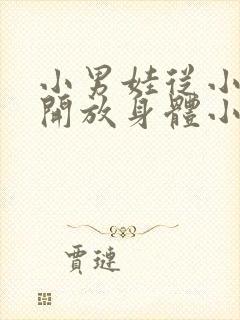 小男娃從小
開放身體小
賈璉